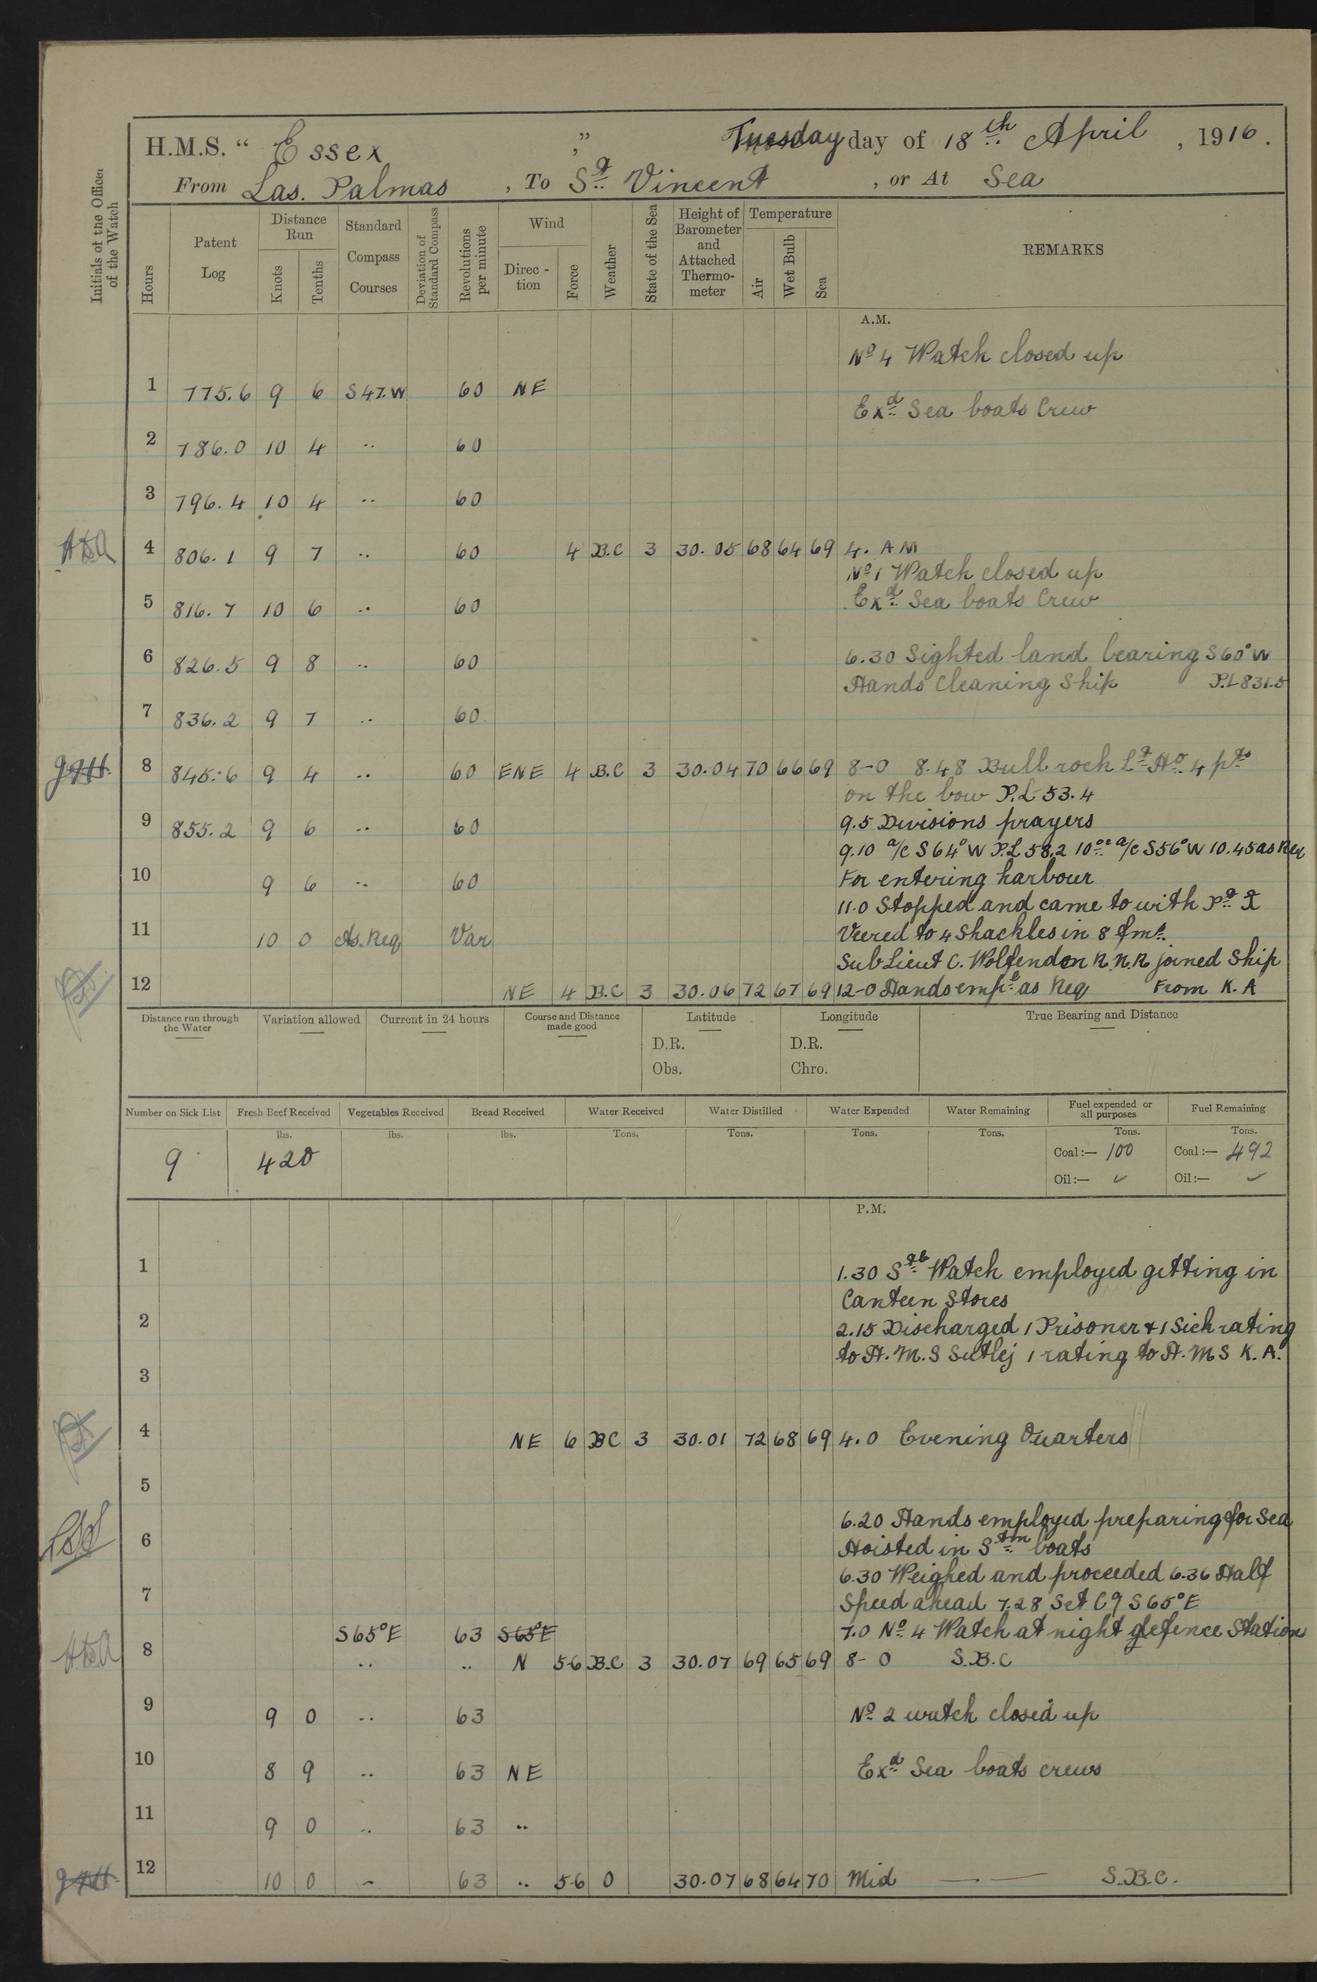 H.M.S. “ Essex ” Tuesday day of 18th April , 1916.
From Las. Palmas , To St Vincent , or At Sea
Initials of the Officer of the Watch
Hours
Patent Log
Distance Run
Knots
Tenths
Standard Compass Courses
Deviation of Standard Compass
Revolutions per minute
Wind
Direc-tion
Force
Weather
State of the Sea
Height of Barometer and Attached Thermo-meter
Temperature
Air
Wet Bulb
Sea
REMARKS
A.M.
No 4 Watch closed up
1 775.6 9 6 S47.W 60 NE
Exd Sea boats Crew
2 786.0 10 4 .. 60
3 796.4 10 4 .. 60
4 806.1 9 7 .. 60 4 B.C 3 30.05 68 64 69 4. AM
No 1 Watch closed up
5 816.7 10 6 .. 60 Exd Sea boats Crew
6 826.5 9 8 .. 60 6.30 Sighted land bearing S60°W
Hands Cleaning Ship P.L 831.5
7 836.2 9 7 .. 60
8 845.6 9 4 .. 60 ENE 4 B.C 3 30.04 70 66 69 8-0 8.48 Bull rock Lt Ho 4 pts
on the bow P.L 53.4
9 855.2 9 6 .. 60 9.5 Divisions prayers
9.10 a/c S64°W P.L 58.2 10.00 a/c S56°W 10.45 as Req
10 9 6 .. 60 For entering harbour
11.0 Stopped and came to with Pt
11 10 0 As. Req Var Veered to 4 Shackles in 8 fms.
Sub Lieut C. Wolfendon R.N.R joined Ship
12 NE 4 B.C 3 30.06 72 67 69 12-0 Hands empd as Req From K.A
Distance run through the Water
Variation allowed
Current in 24 hours
Course and Distance made good
Latitude
D.R.
Obs.
Longitude
D.R.
Chro.
True Bearing and Distance
Number on Sick List
9
Fresh Beef Received
lbs.
420
Vegetables Received
lbs.
Bread Received
lbs.
Water Received
Tons.
Water Distilled
Tons.
Water Expended
Tons.
Water Remaining
Tons.
Fuel expended or all purposes
Tons.
Coal :— 100
Oil :— ✓
Fuel Remaining
Tons.
Coal :— 492
Oil :— ✓
P.M.
1 1.30 Stb Watch employed getting in
Canteen Stores
2 2.15 Discharged 1 Prisoner & 1 Sick rating
to H.M.S Sutlej 1 rating to H.M S K.A.
3
4 NE 6 BC 3 30.01 72 68 69 4.0 Evening Quarters
5
6.20 Hands employed preparing for Sea
6 Hoisted in Stm boats
6.30 Weighed and proceeded 6.36 Half
7 Speed ahead 7.28 Set C9 S65°E
S65°E 63 S65°E 7.0 No 4 Watch at night defence Stations
8 .. .. N 5-6 B.C 3 30.07 69 65 69 8-0 S.B.C
9 9 0 .. 63 No 2 watch closed up
10 8 9 .. 63 NE Exd Sea boats crews
11 9 0 .. 63 ..
12 10 0 .. 63 .. 5-6 O 30.07 68 64 70 Mid — — S.B.C.